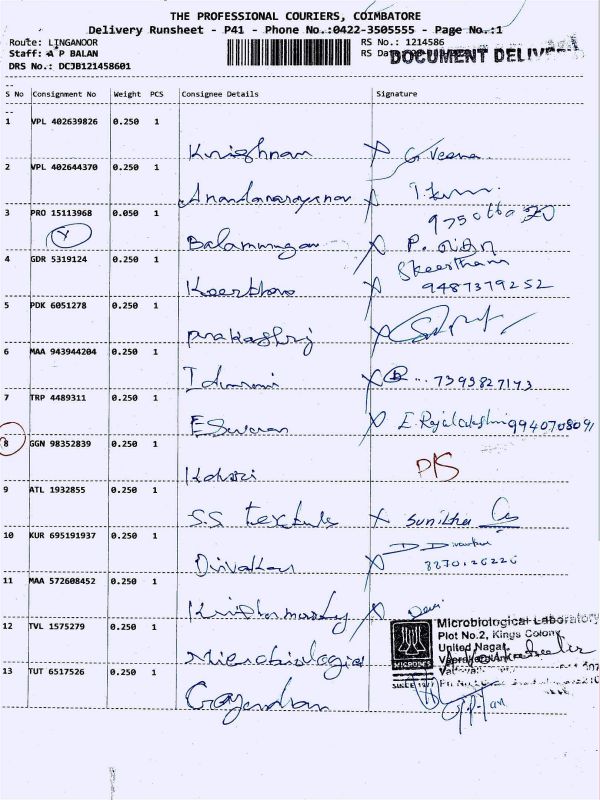 THE PROFESSIONAL COURIERS, COIMBATORE
Delivery Runsheet - P41 - Phone No.:0422-3505555 - Page No.:1
Route: LINGANOOR
RS No.: 1214586
Staff: A P BALAN
RS Da
DOCUMENT DELIV
DRS No.: DCJB121458601
S No Consignment No Weight PCS Consignee Details Signature
1 VPL 402639826 0.250 1
Krishnan X G Veena
2 VPL 402644370 0.250 1
Anandanarayanan X
3 PRO 15113968 0.050 1
Y
Balamurugan X P.
4 GDR 5319124 0.250 1
Keerthana X 9487379252
5 PDK 6051278 0.250 1
Prakashraj X
6 MAA 943944204 0.250 1
X 7393827143
7 TRP 4489311 0.250 1
Eswaran X E. Rajalakshmi 9940708091
8 GGN 98352839 0.250 1
D/S
9 ATL 1932855 0.250 1
S.S Textile X Sunitha
10 KUR 695191937 0.250 1
D. Divakar
Divakar X
11 MAA 572608452 0.250 1
X Devi
12 TVL 1575279 0.250 1
Microbiological Laboratory
Plot No.2, Kings Colony
United Nagar,
MICROBES
SINCE 1977
Microbiological
13 TUT 6517526 0.250 1
Gajendran